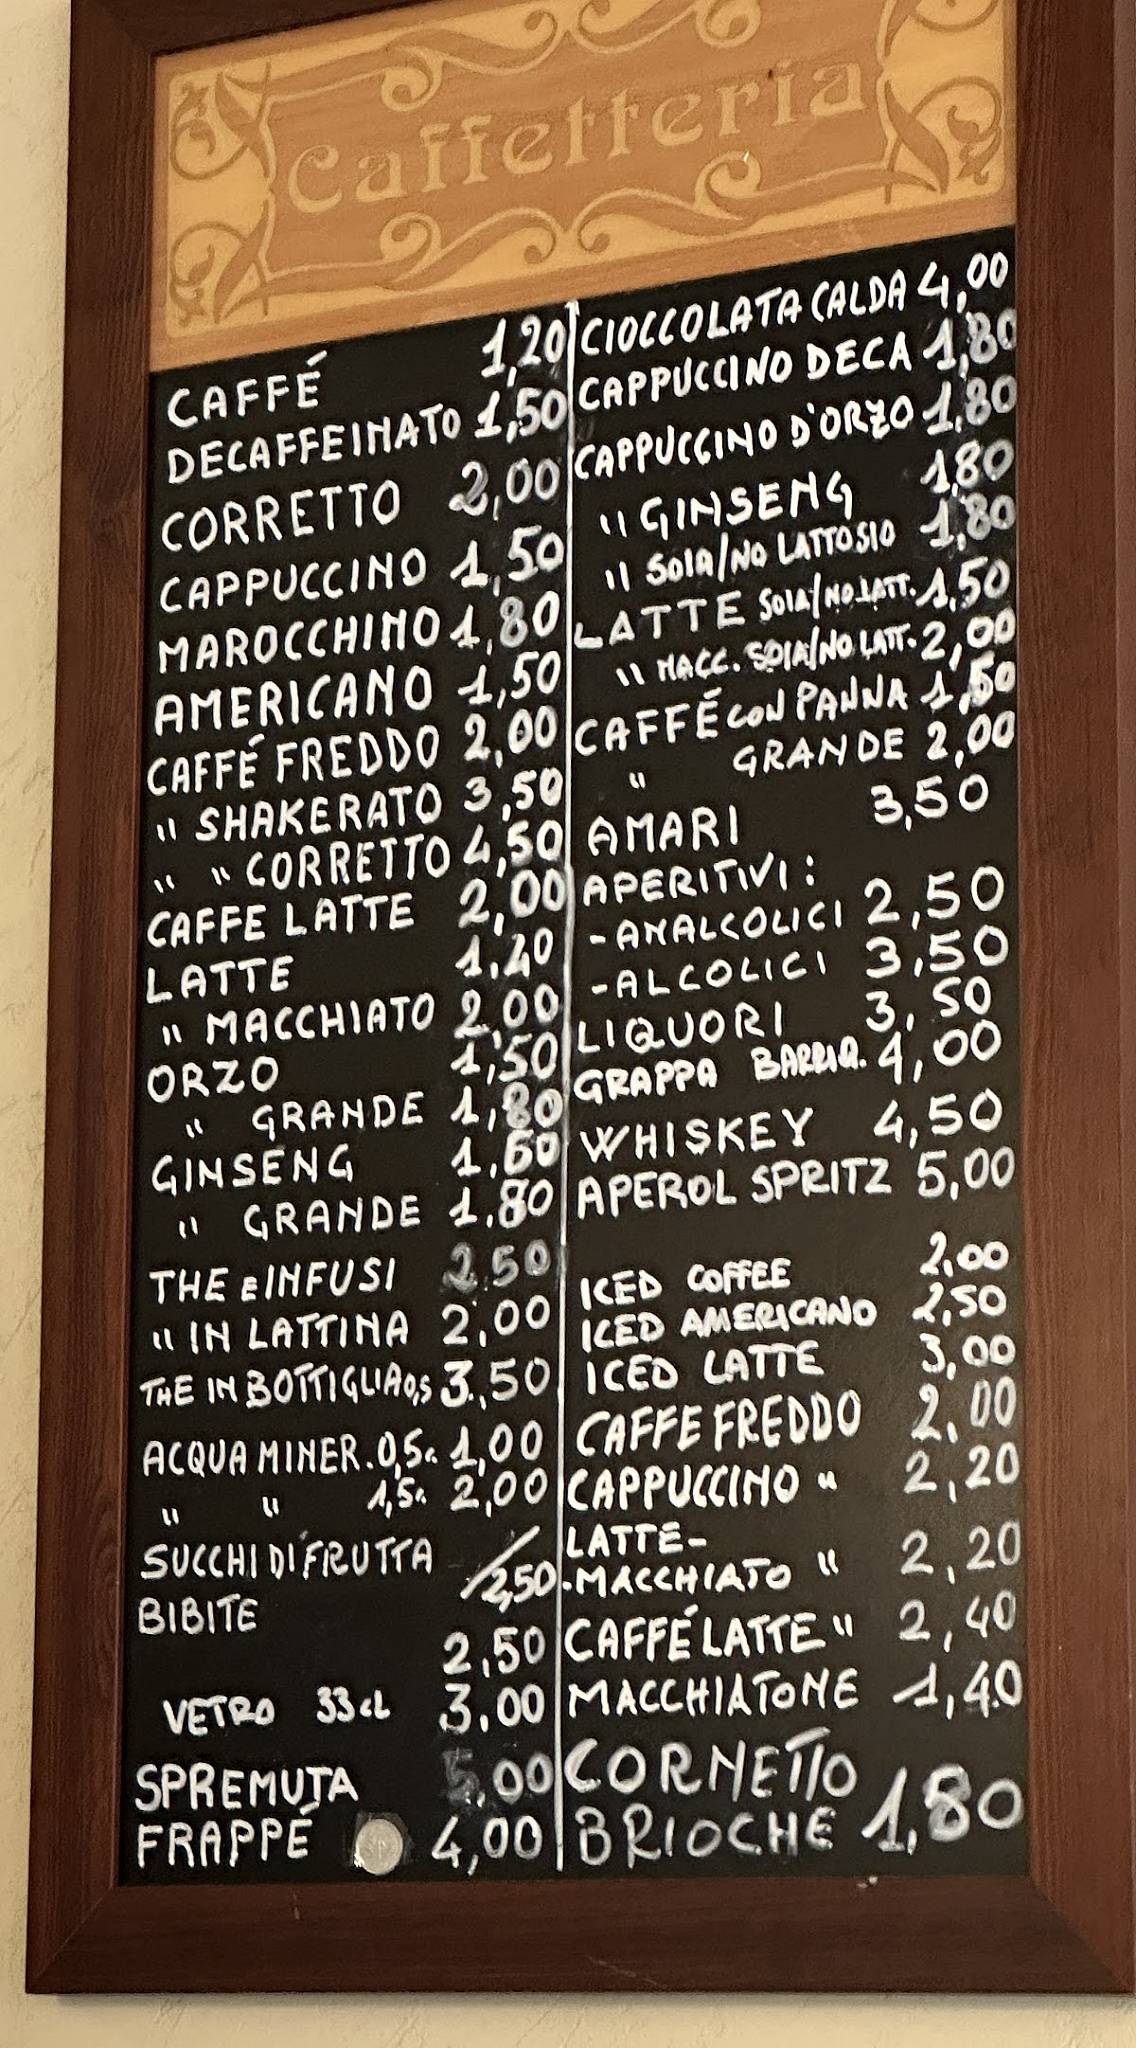 Caffetteria
CAFFÉ 1,20
DECAFFEINATO 1,50
CORRETTO 2,00
CAPPUCCINO 1,50
MAROCCHINO 1,80
AMERICANO 1,50
CAFFÉ FREDDO 2,00
" SHAKERATO 3,50
" " CORRETTO 4,50
CAFFE LATTE 2,00
LATTE
" MACCHIATO 2,00
ORZO 1,50
" GRANDE 1,80
GINSENG
" GRANDE 1,80
THE E INFUSI 2,50
" IN LATTINA 2,00
THE IN BOTTIGLIA 0,5 3,50
ACQUA MINER. 0,5L 1,00
" " 1,5L 2,00
SUCCHI DI FRUTTA
BIBITE 2,50
2,50
VETRO 33cL 3,00
SPREMUTA 5,00
FRAPPÉ 4,00
CIOCCOLATA CALDA 4,00
CAPPUCCINO DECA 1,80
CAPPUCCINO D'ORZO 1,80
" GINSENG 1,80
" SOIA/NO LATTOSIO 1,80
LATTE SOIA/NO LATT. 1,50
" MACC. SOIA/NO LATT. 2,00
CAFFÉ CON PANNA 1,50
" GRANDE 2,00
AMARI 3,50
APERITIVI:
-ANALCOLICI 2,50
-ALCOLICI 3,50
LIQUORI 3,50
GRAPPA BARRIQ. 4,00
WHISKEY 4,50
APEROL SPRITZ 5,00
ICED COFFEE 2,00
ICED AMERICANO 2,50
ICED LATTE 3,00
CAFFE FREDDO 2,00
CAPPUCCINO " 2,20
LATTE-
-MACCHIATO " 2,20
CAFFÉ LATTE " 2,40
MACCHIATONE 1,40
CORNETTO
BRIOCHE 1,80